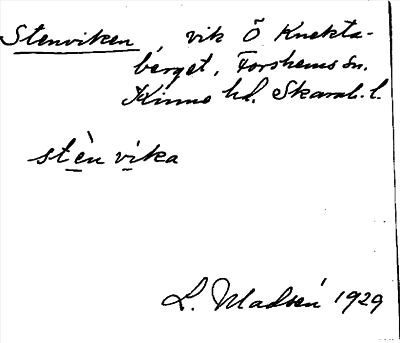 Stenviken, vik Ö Knekta-
berget, Forshems sn.
Kinne hd. Skarab. l.
stèn vika
L. Madsén 1929